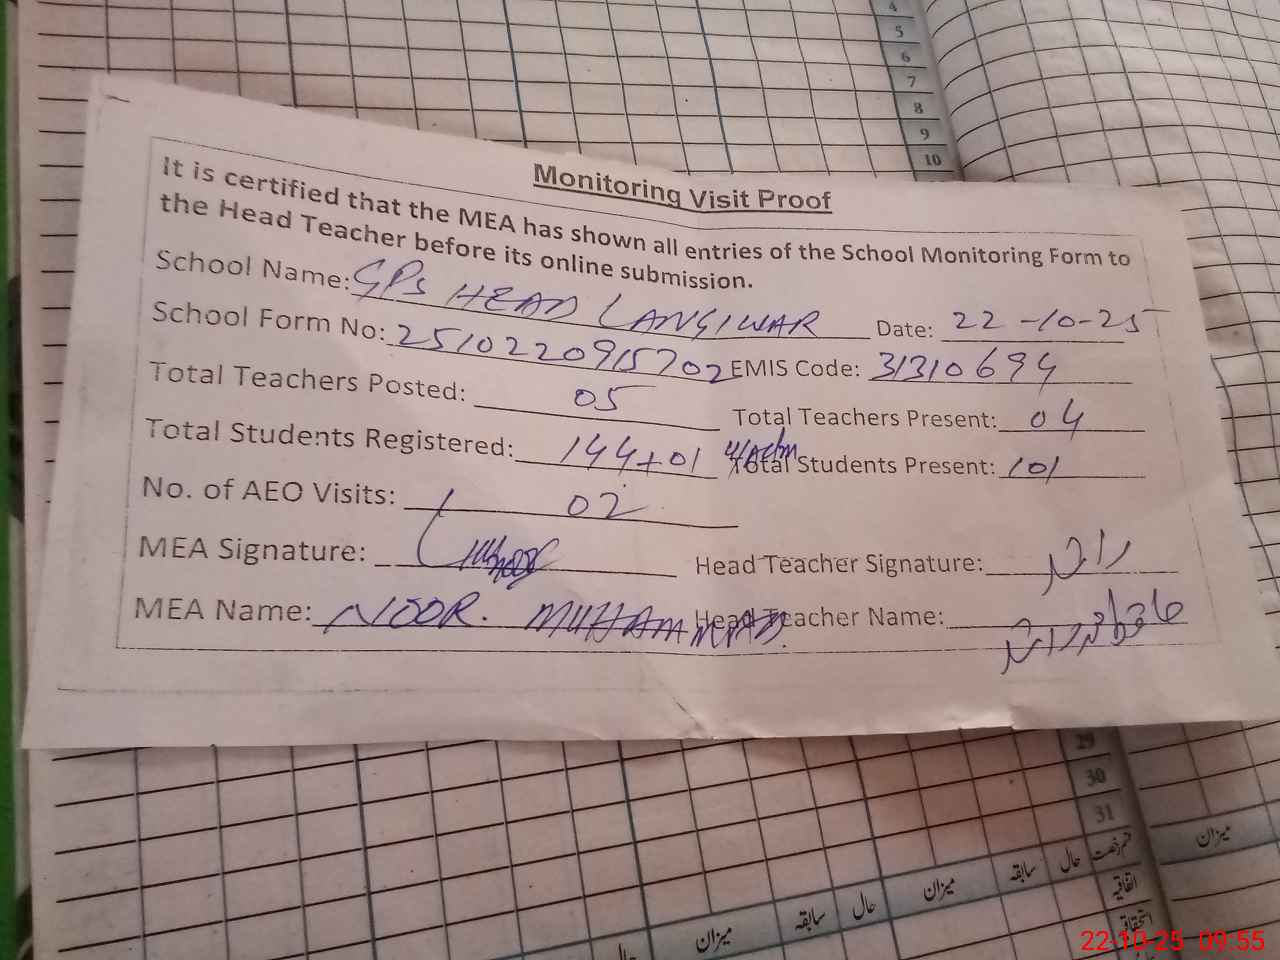 4
5
6
7
8
9
10
Monitoring Visit Proof
It is certified that the MEA has shown all entries of the School Monitoring Form to
the Head Teacher before its online submission.
School Name: GPS HEAD LANGIWAR Date: 22-10-25
School Form No: 2510220915702 EMIS Code: 31310694
Total Teachers Posted: 05 Total Teachers Present: 04
Total Students Registered: 144+01 Total Students Present: 101
No. of AEO Visits: 02
MEA Signature: Head Teacher Signature:
MEA Name: NOOR. MUHAMMAD. Head Teacher Name:
29
30
31
میزان سابقہ حال میزان سابقہ حال میزان
اتفاقیہ
22-10-25 09:55